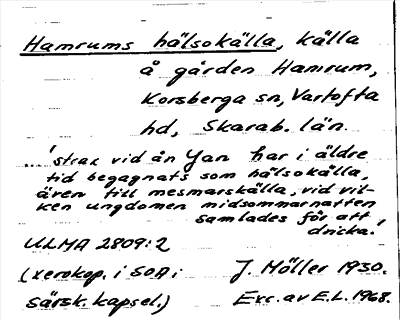 Hamrums hälsokälla, källa
å gården Hamrum,
Korsberga sn, Vartofta
hd, Skarab. län.
...'strax vid ån Yan har i äldre
tid begagnats som hälsokälla,
även till mesmarskälla, vid vil-
ken ungdomen midsommarnatten
samlades för att
dricka.'
ULMA 2809:2
(xerokop. i SOA; J. Möller 1930.
särsk. kapsel.) Exc. av E.L. 1968.